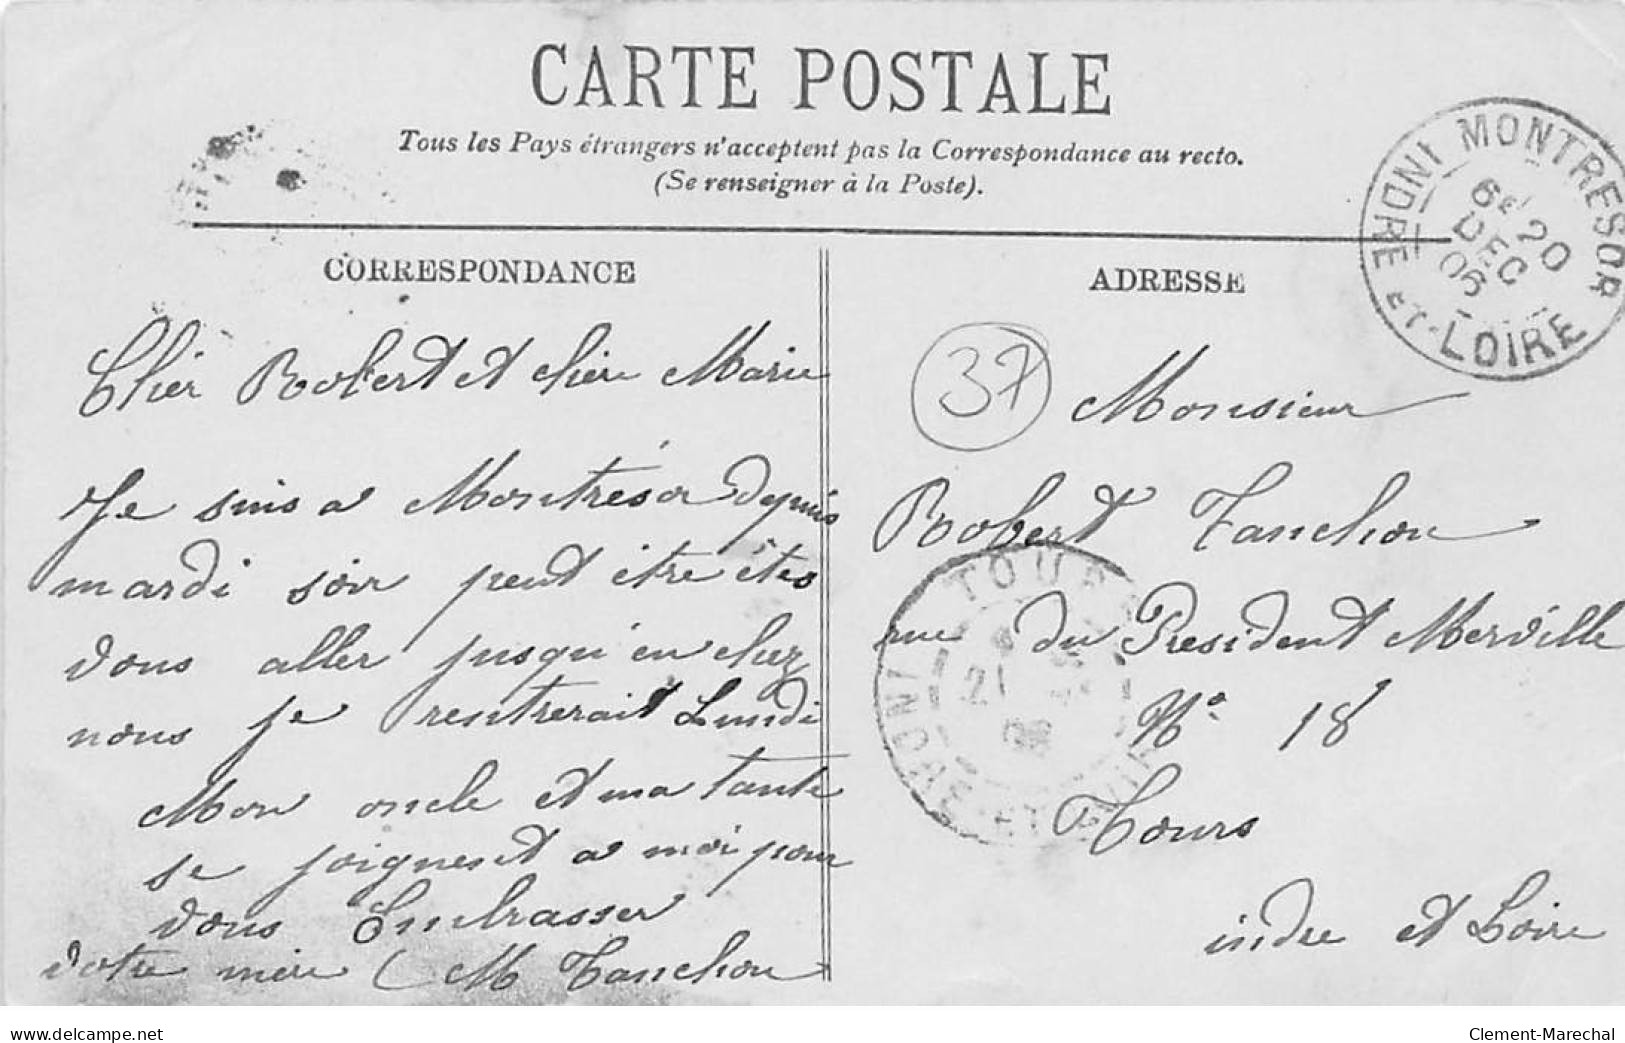 CARTE POSTALE
Tous les Pays étrangers n'acceptent pas la Correspondance au recto.
(Se renseigner à la Poste).
MONTRESOR
INDRE-ET-LOIRE
6E 20
DEC
06
CORRESPONDANCE
Cher Robert et chère Marie
Je suis a Montrésor depuis
mardi soir peut être êtes
vous aller jusqu'en chez
nous je rentrerait Lundi
Mon oncle et ma tante
se joignent a moi pour
vous Embrasser
votre mère (M Tanchou
ADRESSE
37
Monsieur
Robert Tanchou
rue du President Merville
No 18
Tours
indre et Loire
TOURS
21
06
delcampe.net
Clement-Marechal